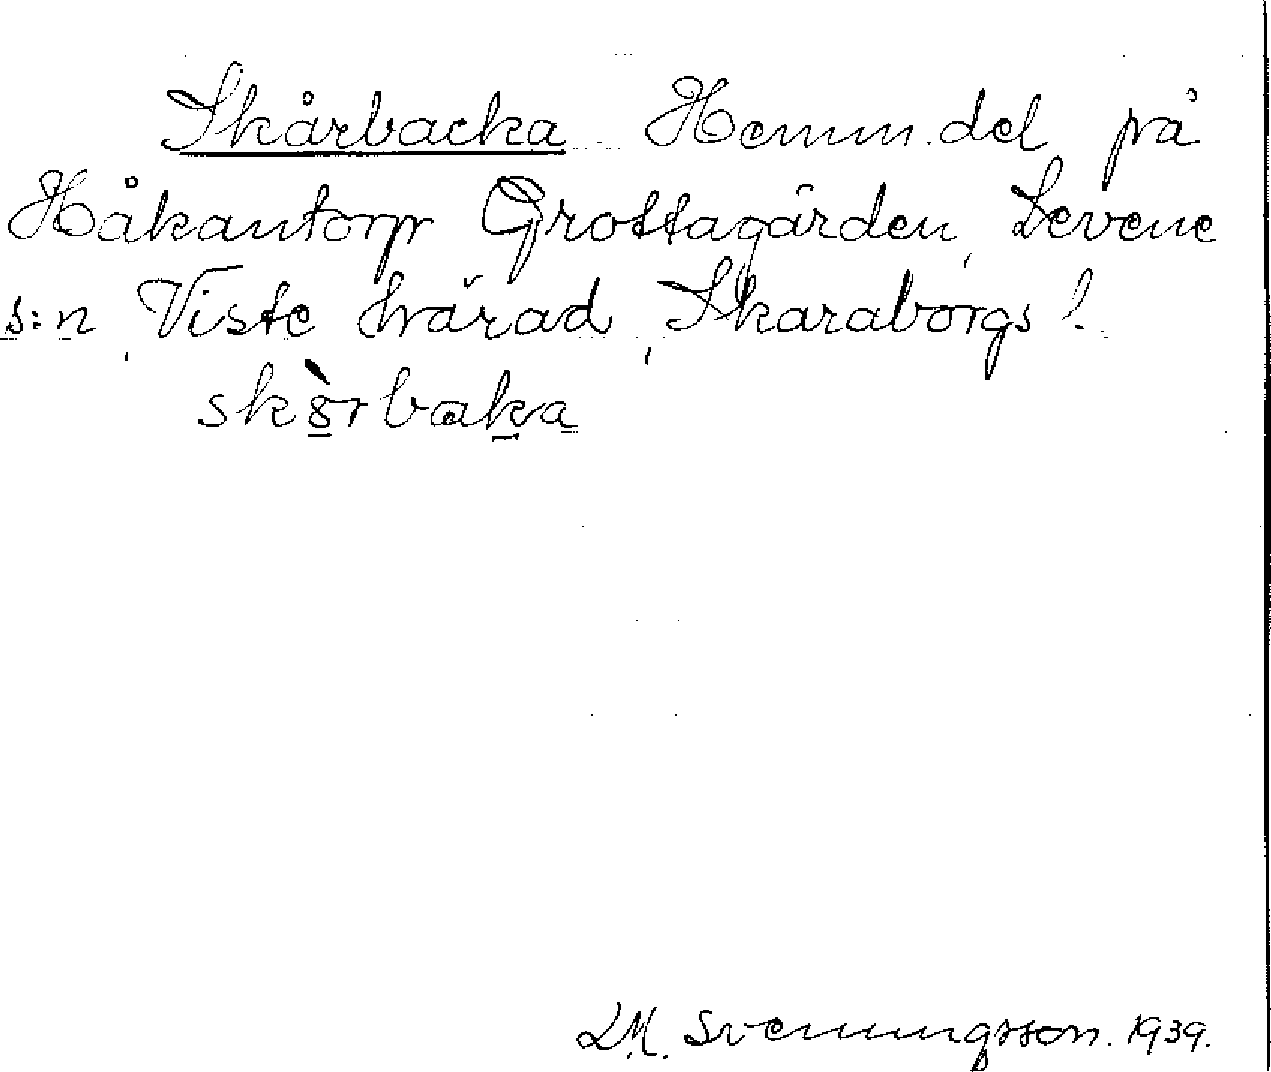 Skårbacka Hemm.del på
Håkantorp Grottagården, Levene
s:n, Viste härad, Skaraborgs l.
skȣ̀rbaka
L.M. Svenungsson. 1939.